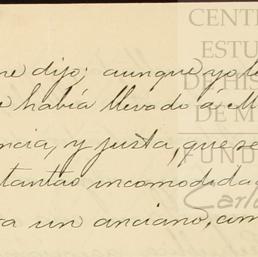 me dijo; aunque yo le
había llevado á M
ncia, y justa, que se
tantas incomodida
ra un anciano, com
CENT
ESTU
DE HIS
DE M
FUND
Carlo